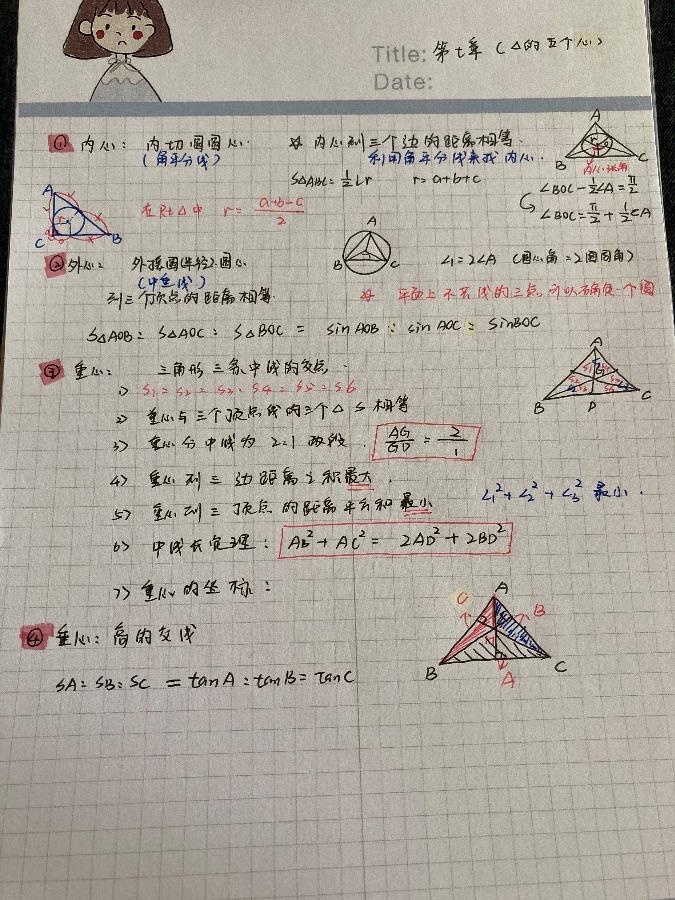 Title: 第七章 (△的五个心)
Date:
① 内心: 内切圆圆心. ※ 内心到三个边的距离相等.
(角平分线) 利用角平分线来找内心.
S△ABC = ½Lr r=a+b+c
A
B C
内心张角
∠BOC - ½∠A = π/2
∠BOC = π/2 + ½∠A
A
C B
在Rt△中 r = (a+b-c)/2
② 外心: 外接圆(半径)圆心
(中垂线)
到三个顶点的距离相等.
A
B C
∠1=2∠A (圆心角=2圆周角)
※ 平面上不共线的三点,可以确定一个圆
S△AOB : S△AOC : S△BOC = sinAOB : sinAOC : sinBOC
③ 重心: 三角形三条中线的交点.
1) S1=S2=S3=S4=S5=S6
2) 重心与三个顶点线的三个△S相等
3) 重心分中线为2:1两段. AG/GD = 2/1
A
B D C
4) 重心到三边距离之积最大.
5) 重心到三顶点的距离平方和最小 L1²+L2²+L3² 最小.
6) 中线长定理: AB²+AC² = 2AD²+2BD²
7) 重心的坐标:
④ 垂心: 高的交线
SA:SB:SC = tanA:tanB:tanC
A
C B
B C
A